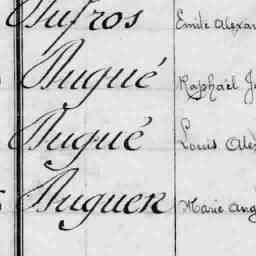 Dufros Emile Alexan
Dugué Raphaël Je
Dugué Louis Alex
Duguer Marie Ang